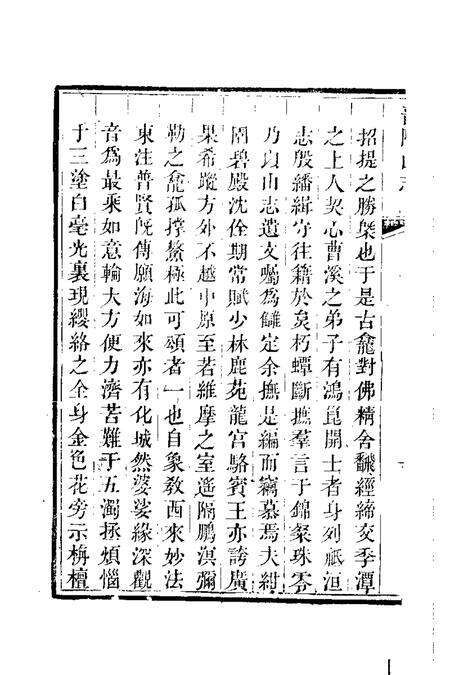 招提之勝槩也于是古龕對佛精舍飜經締交季潭
之上人契心曹溪之弟子有鴻崑開士者身列祇洹
志殷繙緝守往籍於炱朽蟫斷撫羣言于錦粲珠零
乃以山志遺文囑為讎定余撫是編而竊慕焉夫紺
園碧殿沈佺期常賦少林鹿苑龍宮駱賓王亦誇廣
果希蹤方外不越中原至若維摩之室遙隔鵬溟彌
勒之龕孤撐鰲極此可頌者一也自象教西來妙法
東注普賢既傳願海如來亦有化城然婆娑緣深觀
音爲最乘如意輪大方便力濟苦難于五濁拯煩惱
于三塗白毫光裏現纓絡之全身金色花旁示栴檀